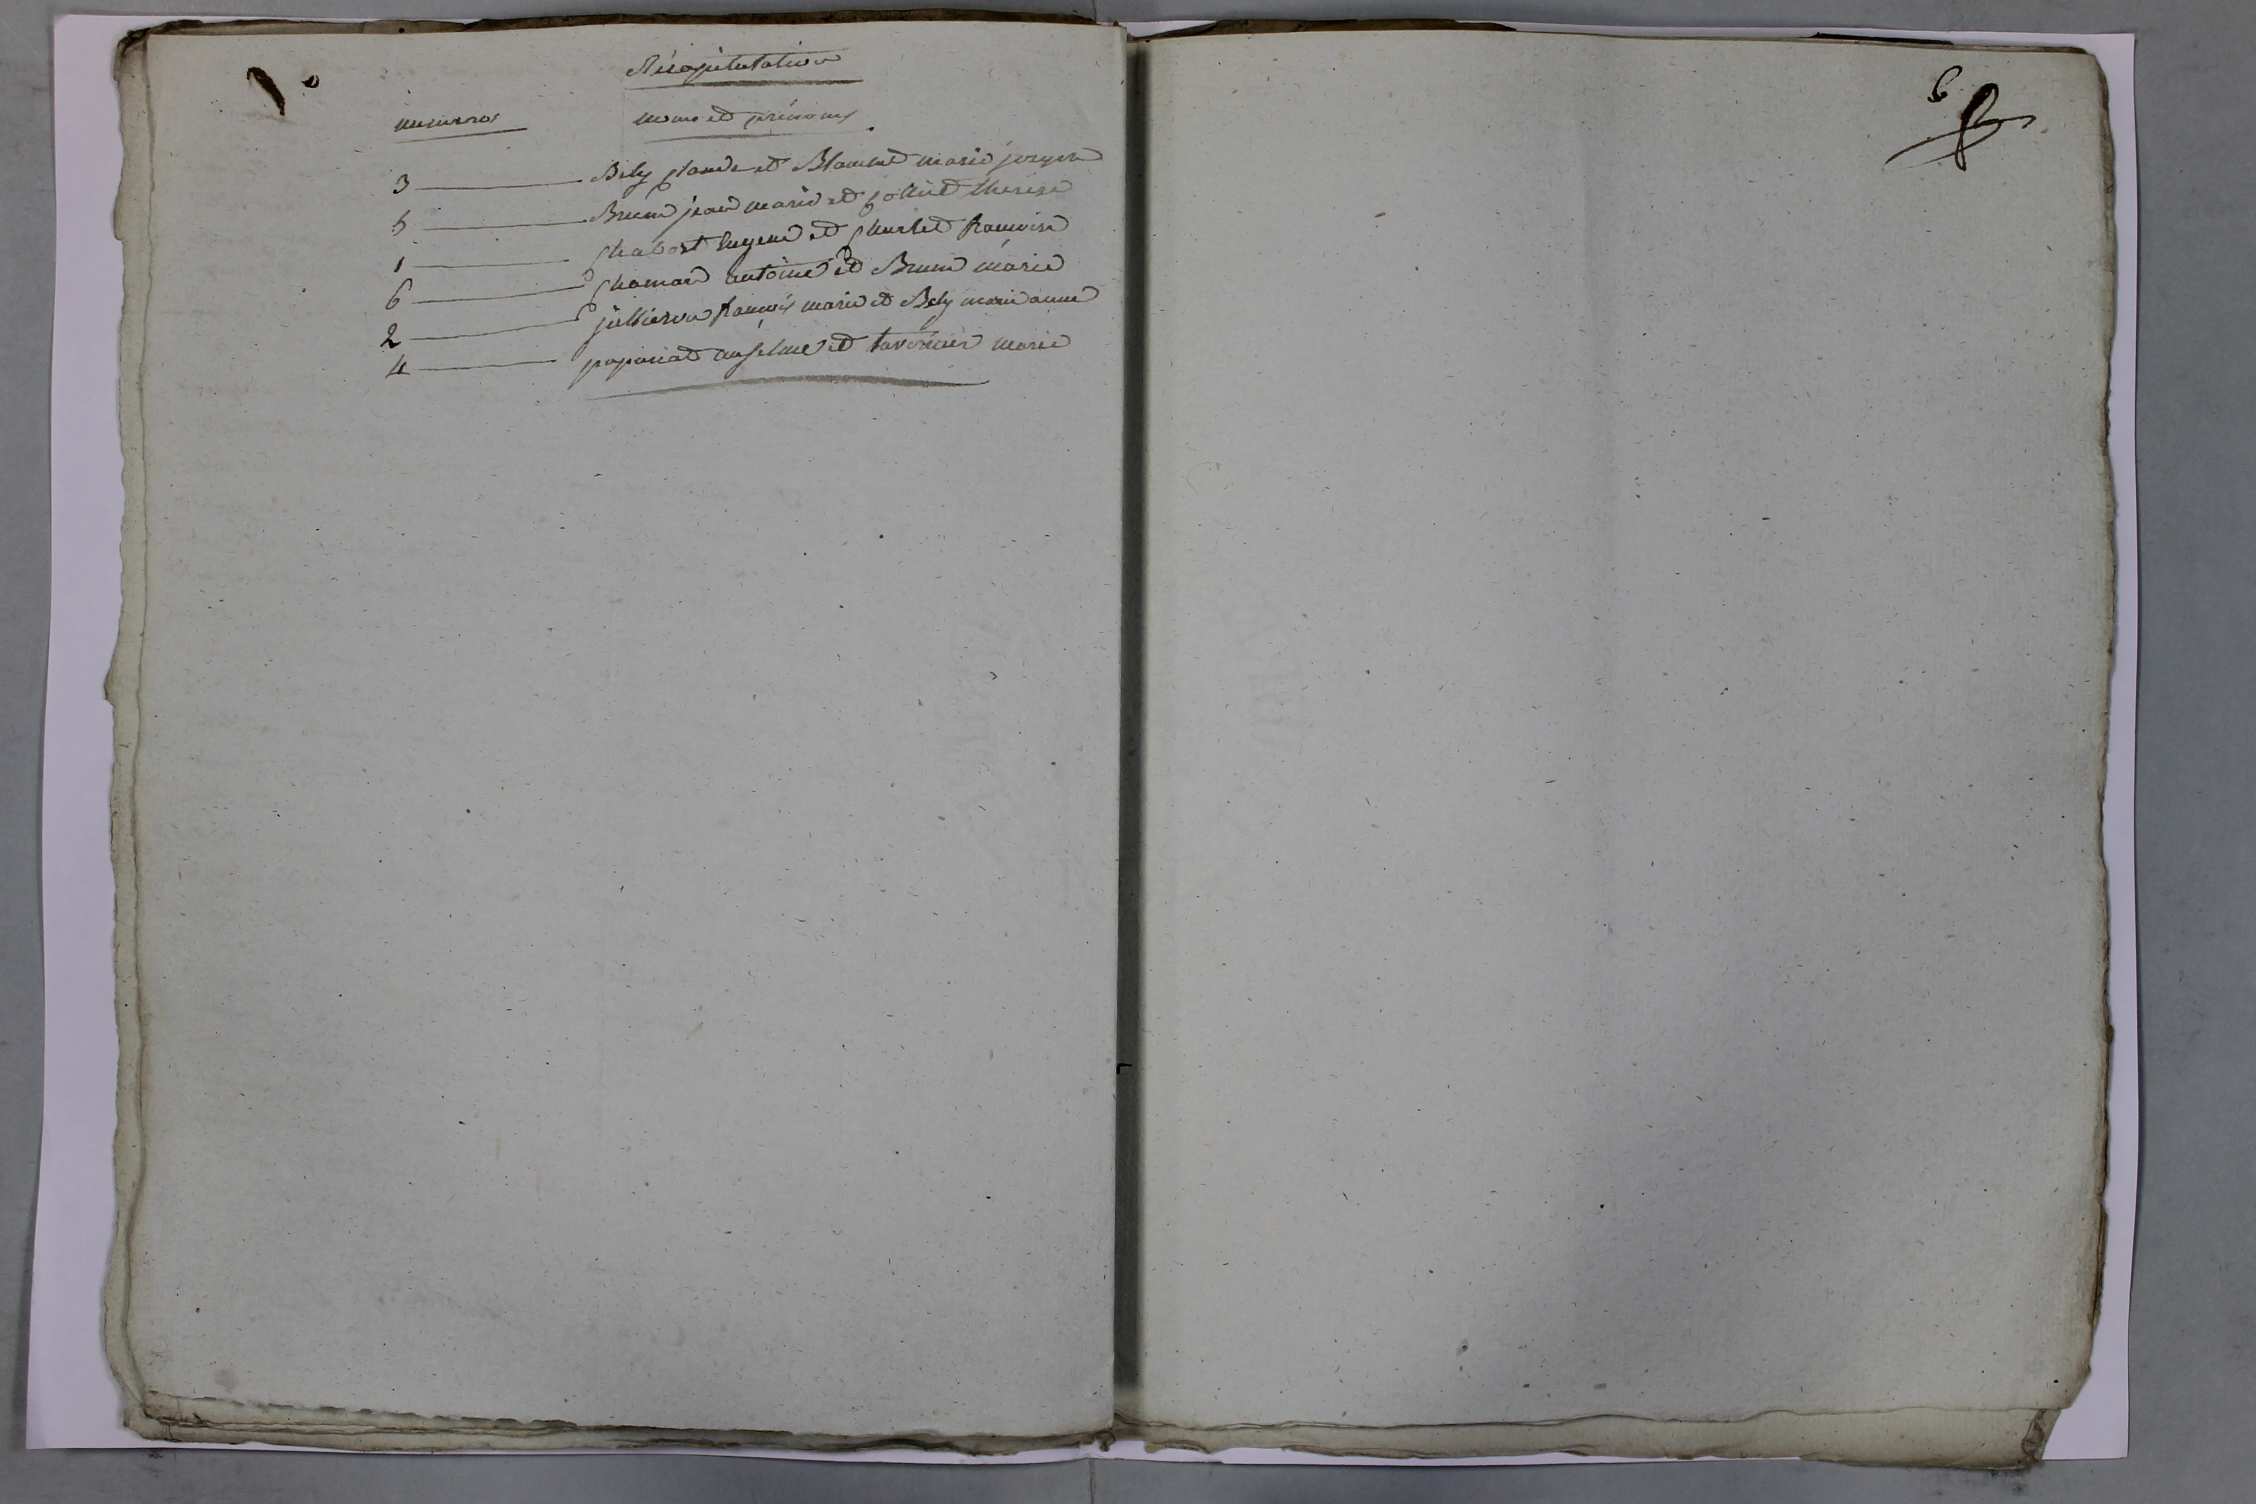 Récapitulation
numeros noms et prénoms
3 Bely Claude et Blanchet marie josephe
5 Brun jean marie et jolliet therese
1 Chabort Eugene et francoise
6 Chamard antoine et Brun marie
2 jullieron francois marie et Bely marie anne
4 paposiat anselme et tavernier marie
6